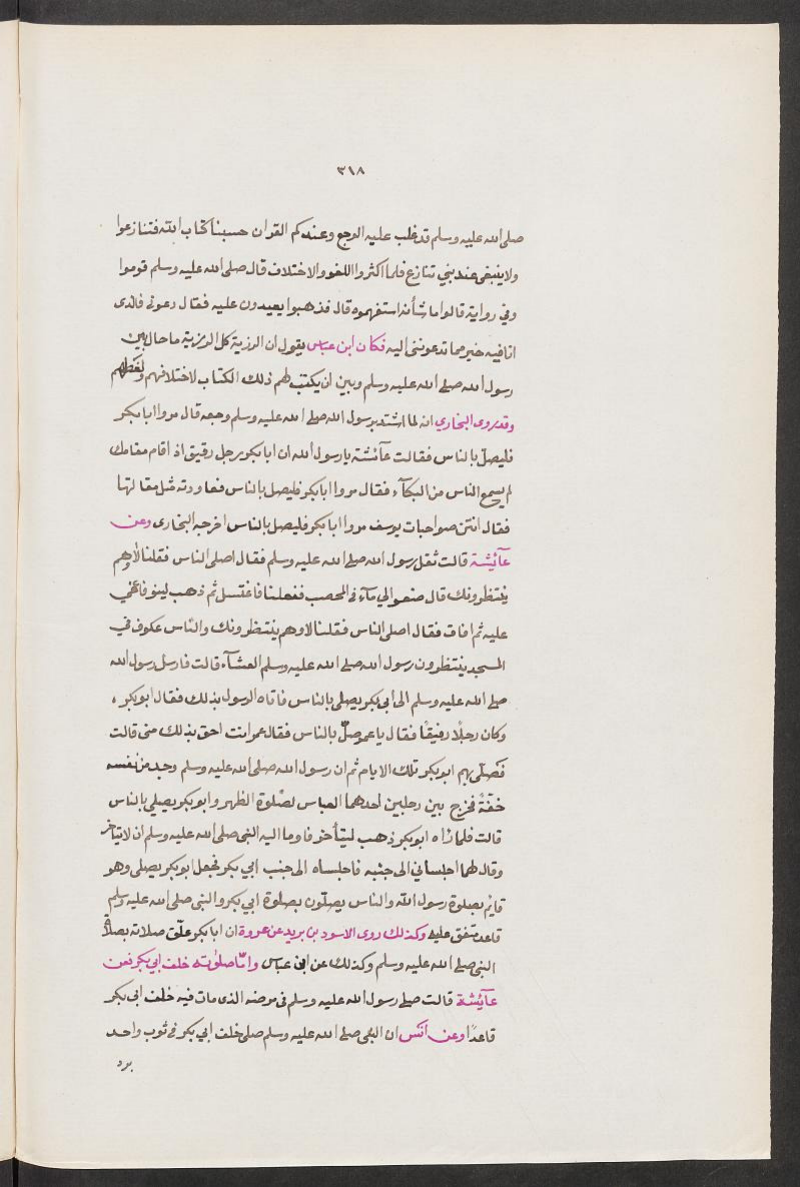 ٣١٨
صلى الله عليه وسلم قد غلب عليه الوجع وعندكم القران حسبنا كتاب الله فتنازعوا
ولا ينبغى عند بني تنازع فلما اكثروا اللغو والاختلاف قال صلى الله عليه وسلم قوموا
وفي رواية قالوا ما شأنه استفهموه قال فذهبوا يعيدون عليه فقال دعونى فالذى
انا فيه خير مما تدعوننى اليه فكان ابن عباس يقول ان الرزية كل الرزية ما حال بين
رسول الله صلى الله عليه وسلم وبين ان يكتب لهم ذلك الكتاب لاختلافهم ولغطهم
وقد روى البخاري انه لما اشتد برسول الله صلى الله عليه وسلم وجعه قال مروا ابا بكر
فليصلّ بالناس فقالت عآئشة يا رسول الله ان ابا بكر رجل رقيق اذ اقام مقامك
لم يسمع الناس من البكآء فقال مروا ابا بكر فليصل بالناس فعاودته مثل مقالتها
فقال انتن صواحبات يوسف مروا ابا بكر فليصل بالناس اخرجه البخارى وعن
عآئيشة قالت ثقل رسول الله صلى الله عليه وسلم فقال اصلى الناس فقلنا لا وهم
ينتظرونك قال ضعوا لي مآء في المخصب ففعلنا فاغتسل ثم ذهب لينو فاغمي
عليه ثم افاق فقال اصلى الناس فقلنا لا وهم ينتظرونك والناس عكوف في
المسجد ينتظرون رسول الله صلى الله عليه وسلم العشآء قالت فارسل رسول الله
صلى الله عليه وسلم الى ابي بكر يصلى بالناس فاتاه الرسول بذلك فقال ابو بكر
وكان رجلًا رقيقًا فقال يا عمر صلّ بالناس فقال عمر انت احق بذلك منى قالت
فصلّى بهم ابو بكر تلك الايام ثم ان رسول الله صلى الله عليه وسلم وجد من نفسه
خفةً فخرج بين رجلين احدهما العباس لصلوة الظهر وابو بكر يصلى بالناس
قالت فلما راه ابو بكر ذهب ليتأخر فاوما اليه النبى صلى الله عليه وسلم ان لا يتاخر
وقال لهما اجلسانى الى جنبه فاجلساه الى جنب ابي بكر فجعل ابو بكر يصلى وهو
قايم بصلوة رسول الله والناس يصلّون بصلوة ابي بكر والنبى صلى الله عليه وسلم
قاعد متفق عليه وكذلك روى الاسود بن يزيد عن عروة ان ابا بكر علّق صلاته بصلاة
النبى صلى الله عليه وسلم وكذلك عن ابن عباس وامّا صلوته خلف ابي بكر فعن
عآئيشة قالت صلى رسول الله عليه وسلم فى مرضه الذى مات فيه خلف ابى بكر
قاعدًا وعن انس ان النبى صلى الله عليه وسلم صلى خلف ابي بكر في ثوب واحد
برد